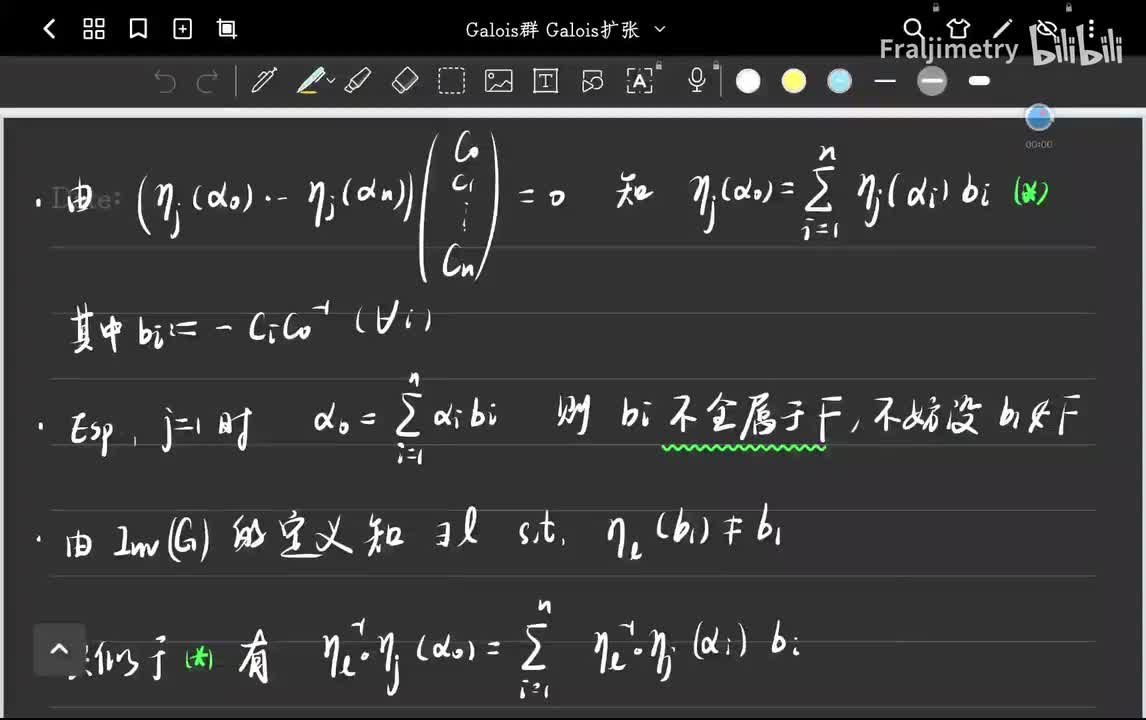 Galois群 Galois扩张
Fraljimetry bilibili
00:00
· 由 (η_j(α_0) ·· η_j(α_n)) (C_0 C_1 ⋮ C_n) = 0 知 η_j(α_0) = ∑_{i=1}^{n} η_j(α_i) b_i (*)
其中 b_i := - C_i C_0^{-1} (∀i)
· Esp, j=1 时 α_0 = ∑_{i=1}^{n} α_i b_i 则 b_i 不全属于 F, 不妨设 b_1 ∉ F
· 由 Inv(G) 的定义知 ∃l s.t. η_l(b_1) ≠ b_1
似于 (*) 有 η_l^{-1}∘η_j(α_0) = ∑_{i=1}^{n} η_l^{-1}∘η_j(α_i) b_i